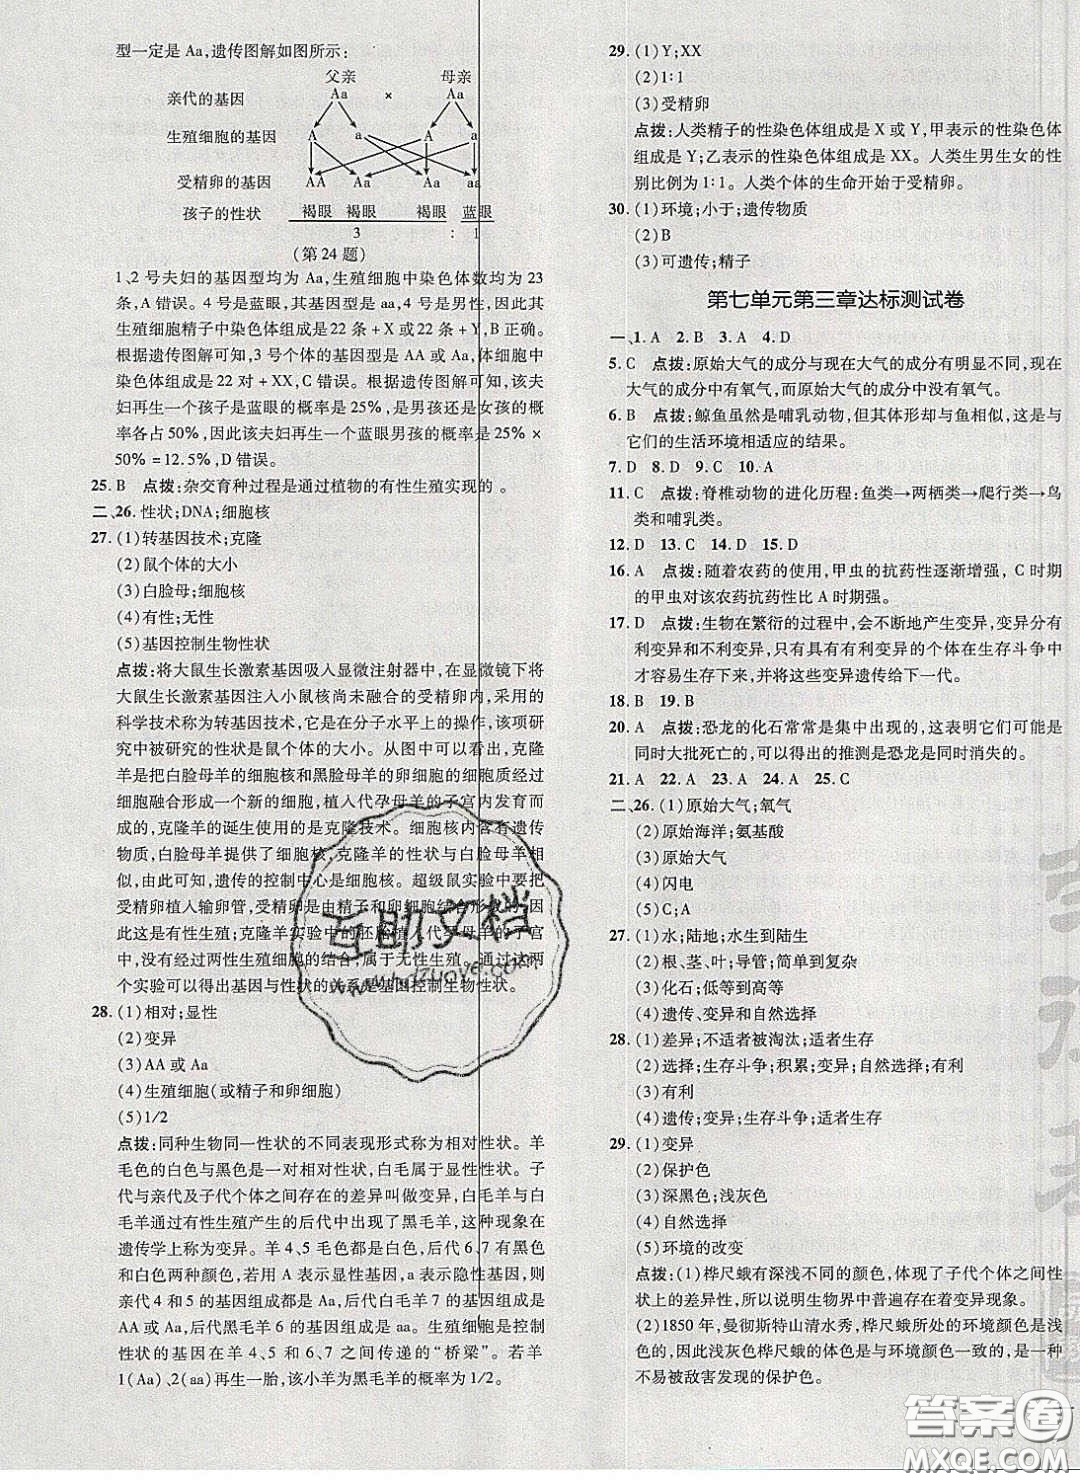 型一定是 Aa,遗传图解如图所示:
父亲 母亲
亲代的基因 Aa × Aa
生殖细胞的基因 A a A a
受精卵的基因 AA Aa Aa aa
孩子的性状 褐眼 褐眼 褐眼 蓝眼
3 : 1
(第 24 题)
1、2 号夫妇的基因型均为 Aa,生殖细胞中染色体数均为 23
条,A 错误。4 号是蓝眼,其基因型是 aa,4 号是男性,因此其
生殖细胞精子中染色体组成是 22 条 + X 或 22 条 + Y,B 正确。
根据遗传图解可知,3 号个体的基因型是 AA 或 Aa,体细胞中
染色体组成是 22 对 + XX,C 错误。根据遗传图解可知,该夫
妇再生一个孩子是蓝眼的概率是 25%,是男孩还是女孩的概
率各占 50%,因此该夫妇再生一个蓝眼男孩的概率是 25% ×
50% = 12.5%,D 错误。
25. B 点拨:杂交育种过程是通过植物的有性生殖实现的。
二、26. 性状;DNA;细胞核
27. (1)转基因技术;克隆
(2)鼠个体的大小
(3)白脸母;细胞核
(4)有性;无性
(5)基因控制生物性状
点拨:将大鼠生长激素基因吸入显微注射器中,在显微镜下将
大鼠生长激素基因注入小鼠核尚未融合的受精卵内,采用的
科学技术称为转基因技术,它是在分子水平上的操作,该项研
究中被研究的性状是鼠个体的大小。从图中可以看出,克隆
羊是把白脸母羊的细胞核和黑脸母羊的卵细胞的细胞质经过
细胞融合形成了一个新的细胞,植入代孕母羊的子宫内发育而
成的,克隆羊的诞生使用的是克隆技术。细胞核内含有遗传
物质,白脸母羊提供了细胞核,克隆羊的性状与白脸母羊相
似,由此可知,遗传的控制中心是细胞核。超级鼠实验中要把
受精卵植入输卵管,受精卵是由精子和卵细胞结合形成的,因
此这是有性生殖;克隆羊实验中的胚胎植入代孕母羊的子宫
中,没有经过两性生殖细胞的结合,属于无性生殖。通过这两
个实验可以得出基因与性状的关系是基因控制生物性状。
28. (1)相对;显性
(2)变异
(3)AA 或 Aa
(4)生殖细胞(或精子和卵细胞)
(5)1/2
点拨:同种生物同一性状的不同表现形式称为相对性状。羊
毛色的白色与黑色是一对相对性状,白毛属于显性性状。子
代与亲代及子代个体之间存在的差异叫做变异,白毛羊与白
毛羊通过有性生殖产生的后代中出现了黑毛羊,这种现象在
遗传学上称为变异。羊 4、5 毛色都是白色,后代 6、7 有黑色
和白色两种颜色,若用 A 表示显性基因,a 表示隐性基因,则
亲代 4 和 5 的基因组成都是 Aa,后代白毛羊 7 的基因组成是
AA 或 Aa,后代黑毛羊 6 的基因组成是 aa。生殖细胞是控制
性状的基因在羊 4、5 和 6、7 之间传递的“桥梁”。若羊
1(Aa)、2(aa)再生一胎,该小羊为黑毛羊的概率为 1/2。
29. (1)Y;XX
(2)1:1
(3)受精卵
点拨:人类精子的性染色体组成是 X 或 Y,甲表示的性染色体
组成是 Y;乙表示的性染色体组成是 XX。人类生男生女的性
别比例为 1:1。人类个体的生命开始于受精卵。
30. (1)环境;小于;遗传物质
(2)B
(3)可遗传;精子
第七单元第三章达标测试卷
一、1. A 2. B 3. A 4. D
5. C 点拨:原始大气的成分与现在大气的成分有明显不同,现在
大气的成分中有氧气,而原始大气的成分中没有氧气。
6. B 点拨:鲸鱼虽然是哺乳动物,但其体形却与鱼相似,这是与
它们的生活环境相适应的结果。
7. D 8. D 9. C 10. A
11. C 点拨:脊椎动物的进化历程:鱼类→两栖类→爬行类→鸟
类和哺乳类。
12. D 13. C 14. D 15. D
16. A 点拨:随着农药的使用,甲虫的抗药性逐渐增强,C 时期
的甲虫对该农药抗药性比 A 时期强。
17. D 点拨:生物在繁衍的过程中,会不断地产生变异,变异分有
利变异和不利变异,只有具有有利变异的个体在生存斗争中
才容易生存下来,并将这些变异遗传给下一代。
18. B 19. B
20. A 点拨:恐龙的化石常常是集中出现的,这表明它们可能是
同时大批死亡的,可以得出的推测是恐龙是同时消失的。
21. A 22. A 23. A 24. A 25. C
二、26. (1)原始大气;氧气
(2)原始海洋;氨基酸
(3)原始大气
(4)闪电
(5)C;A
27. (1)水;陆地;水生到陆生
(2)根、茎、叶;导管;简单到复杂
(3)化石;低等到高等
(4)遗传、变异和自然选择
28. (1)差异;不适者被淘汰;适者生存
(2)选择;生存斗争;积累;变异;选择;有利
(3)有利
(4)遗传;变异;生存斗争;适者生存
29. (1)变异
(2)保护色
(3)深黑色;浅灰色
(4)自然选择
(5)环境的改变
点拨:(1)桦尺蛾有深浅不同的颜色,体现了子代个体之间性
状上的差异性,所以说明生物界中普遍存在着变异现象。
(2)1850 年,曼彻斯特山清水秀,桦尺蛾所处的环境颜色是浅
色的,因此浅灰色桦尺蛾的体色是与环境颜色一致的,是一种
不易被敌害发现的保护色。
互助文档
www.hdzuoye.com
答案圈
MXQE.COM